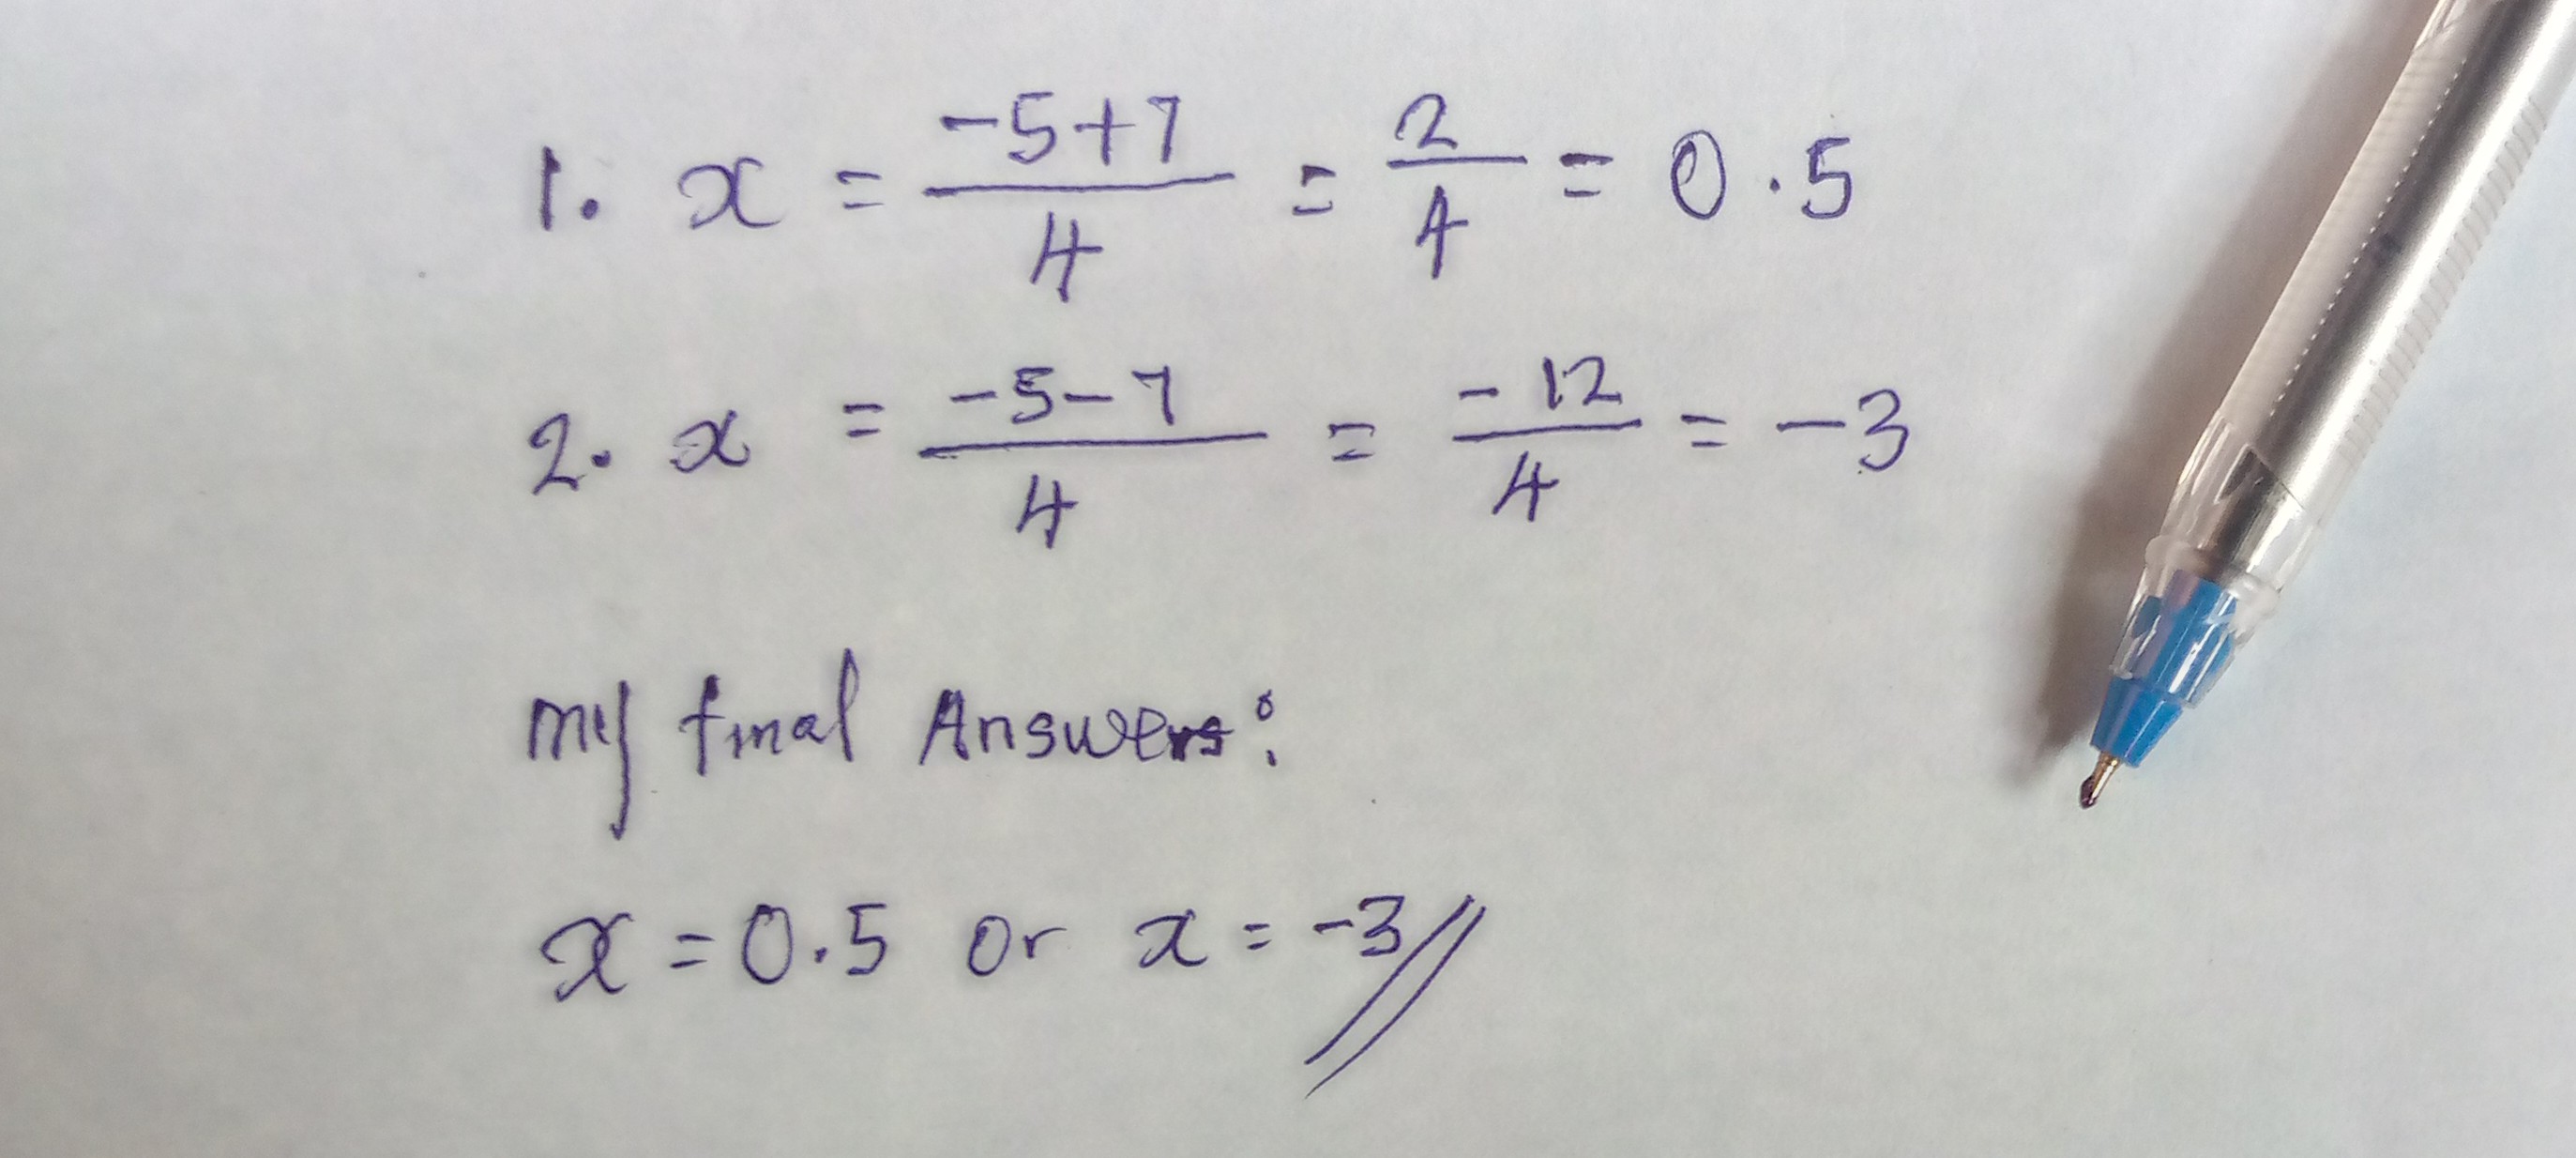 1. x = -5+7/4 = 2/4 = 0.5
2. x = -5-7/4 = -12/4 = -3
my final Answers:
x = 0.5 or x = -3//